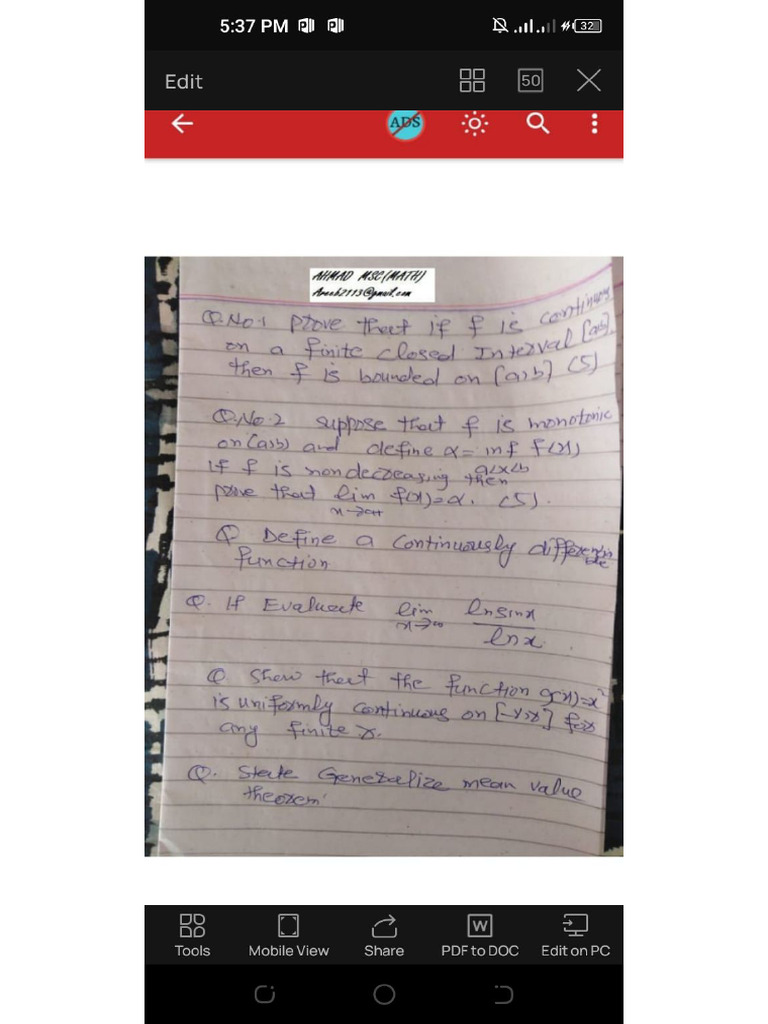 5:37 PM
32
Edit
50
ADS
AHMAD MSC(MATH)
Areeb2113@gmail.com
Q.No.1 Prove that if f is continuous
on a finite closed Interval [a,b],
then f is bounded on [a,b] (5)
Q.No.2 suppose that f is monotonic
on (a,b) and define α = inf f(x)
a<x<b
If f is nondecreasing then
prove that lim f(x)=α. (5).
x→a+
Q Define a continuously differentia
ble
function
Q. If Evaluate lim lnsinx
x→0 lnx
Q Show that the function g(x)=x²
is uniformly continuous on [-r,r] for
any finite r.
Q. State Generalize mean value
theorem
Tools
Mobile View
Share
W
PDF to DOC
Edit on PC